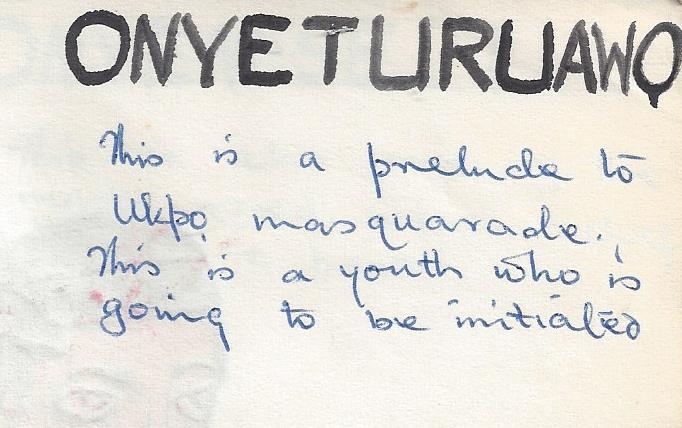 ONYETURUAWỌ
This is a prelude to
Ukpọ masquarade.
This is a youth who is
going to be initiated